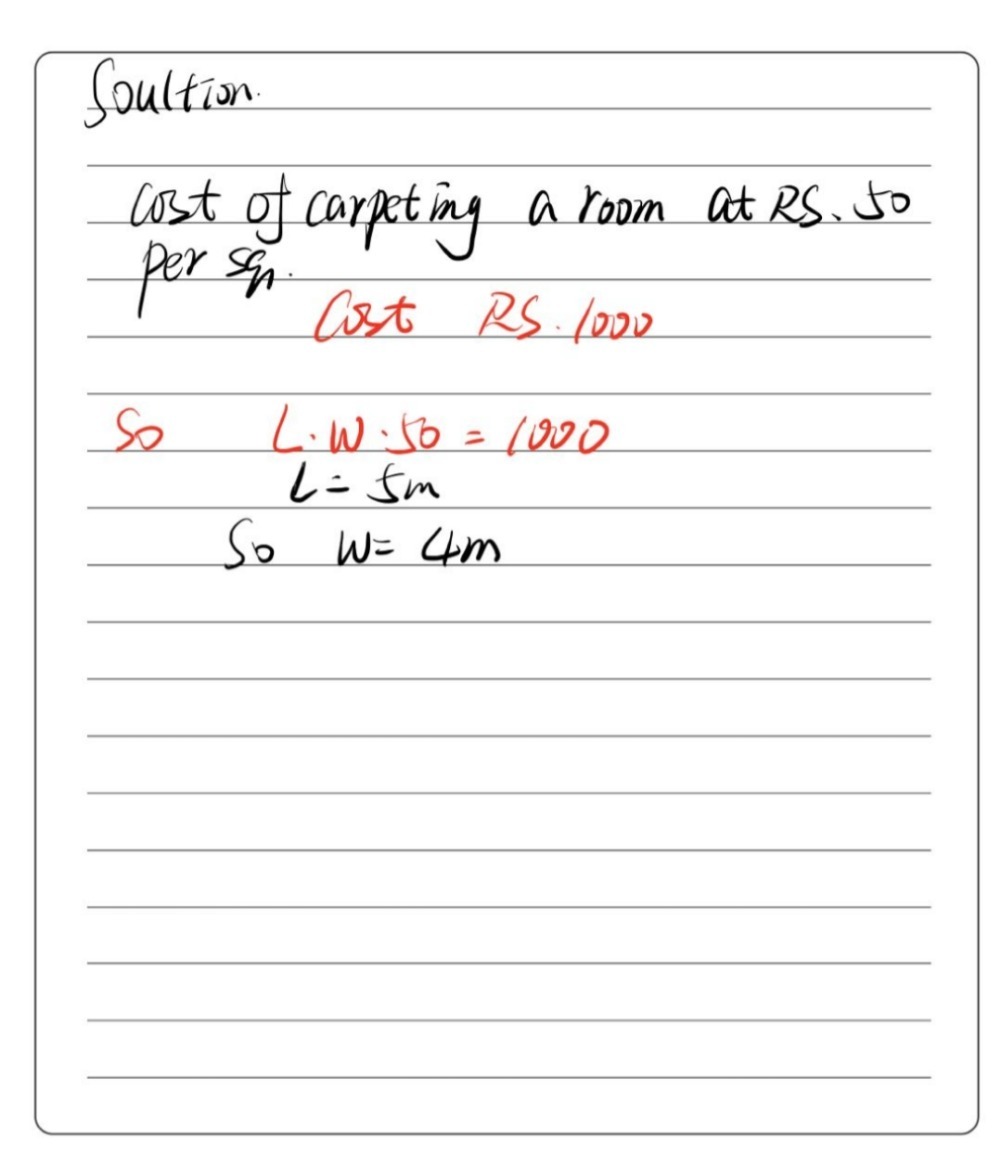 Soultion.
Cost of carpeting a room at RS. 50
per sq.
Cost RS. 1000
So L.W.50 = 1000
L = 5m
So W= 4m